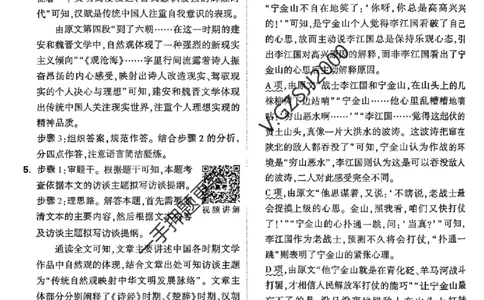 代”可知，汉赋是传统中国人注重自我意识的表现。
由原文第四段“到了六朝……在这一时期的建
安和魏晋文学中，自然观体现了一种强烈的新现实
主义倾向”“《观沧海》……字里行间流露着诗人振
奋昂扬的内心感受，映射出诗人改造现实、驾驭现
实的个人决心与理想”可知，建安和魏晋文学体现
出传统中国人关注现实世界，注重个人理想实现的
精神品质。
步骤3：组织答案，规范作答。结合步骤2的分析，
分四点作答，注意语言简洁凝练。
5. 步骤1：审题干。根据题干可知，本题考
查依据本文的访谈主题拟写访谈提纲。
步骤2：理思路。解答本题，首先需要
清文本的主要内容，然后根据文本
及访谈主题拟写访谈提纲。
视频讲解
通读全文可知，文章主要讲述中国各时期文学
作品中自然观的体现，结合文章出处可知访谈主题
为“传统自然观映射中华文明发展脉络”。文章主
体部分分别阐释了《诗经》时期、《楚辞》时期、汉朝
“宁金山不自在地笑了：‘你呀，你总是高高兴兴
的！’”可知，是宁金山个人觉得李江国看破了自己
的心思，故而主动说李江国总是保持乐观心态，引
出李江国对高兴原因的解释，而非李江国看出了宁
金山的心思后主动解释原因。
A项，由原文“战士李江国和宁金山，在山头上的几
棵
下边站哨”“宁金山……他心里乱糟糟地嘀
咕：穷山恶水啊……”“李江国……觉得这起伏的
黄土山头，真像一大洪水的波涛。这波涛把窜在
陕北的敌人都吞没了”可知，宁金山认为作战的环
境是“穷山恶水”，李江国则认为这是可以吞没敌人
的波涛，二人对此感受完全不同。
C项，由原文“他思谋着，又说：‘不瞎说，老战士最
会捉摸上级的心思。金山，照我看，咱们又快打仗
了！’”“宁金山的心扑通一跳，问：‘当真？’”可知，
李江国作为老战士，预测不久将会打仗，“扑通一
跳”则表明了宁金山的紧张心理。
D项，由原文“他宁金山就是在青化砭、羊马河战斗
打罢，才相信人民解放军打仗的能巧”“让宁金山最
二手押题
y:GZSJ2000